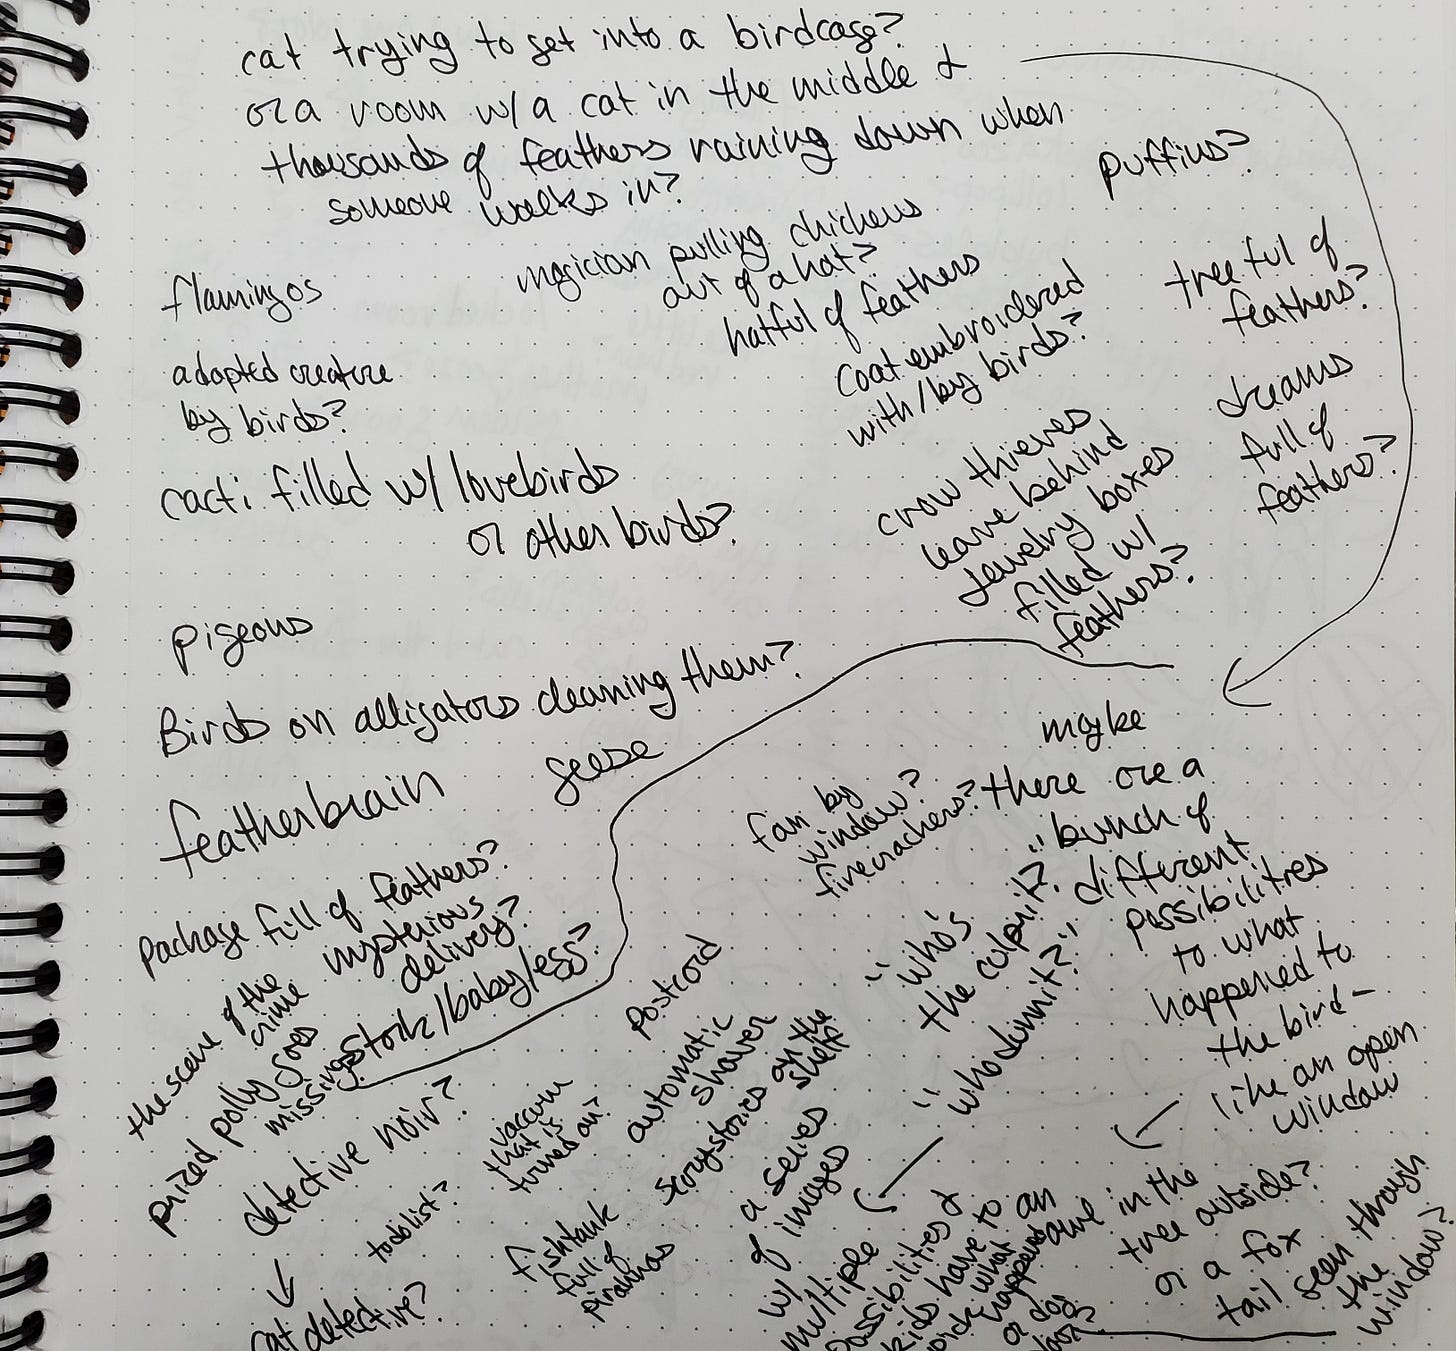 cat trying to get into a birdcage?
or a room w/ a cat in the middle &
thousands of feathers raining down when
someone walks in?
puffins?
flamingos
magician pulling chickens
out of a hat?
hatful of feathers
tree full of
feathers?
adopted creature
by birds?
coat embroidered
with/by birds?
dreams
full of
feathers?
cacti filled w/ lovebirds
or other birds?
crow thieves
leave behind
jewelry boxes
filled w/
feathers?
pigeons
Birds on alligators cleaning them?
geese
featherbrain
package full of feathers?
mysterious
delivery?
missing stork/baby/egg?
the scene of the
crime
prized polly goes
missing?
detective noir?
cat detective?
todo list?
vaccum
that is
turned on?
fishtank
full of
piranhas
postcard
automatic
shaver
scary stories on the
shelf
fan by
window?
firecrackers?
maybe
there are a
bunch of
different
possibilities
to what
happened to
the bird –
like an open
window
owl in the
tree outside?
or a fox
tail seen through
the
window?
"who's
the culprit?"
"whodunnit?"
a series
of images
w/
multiple
possibilities &
kids have to
pick what
happened
or dog
door?